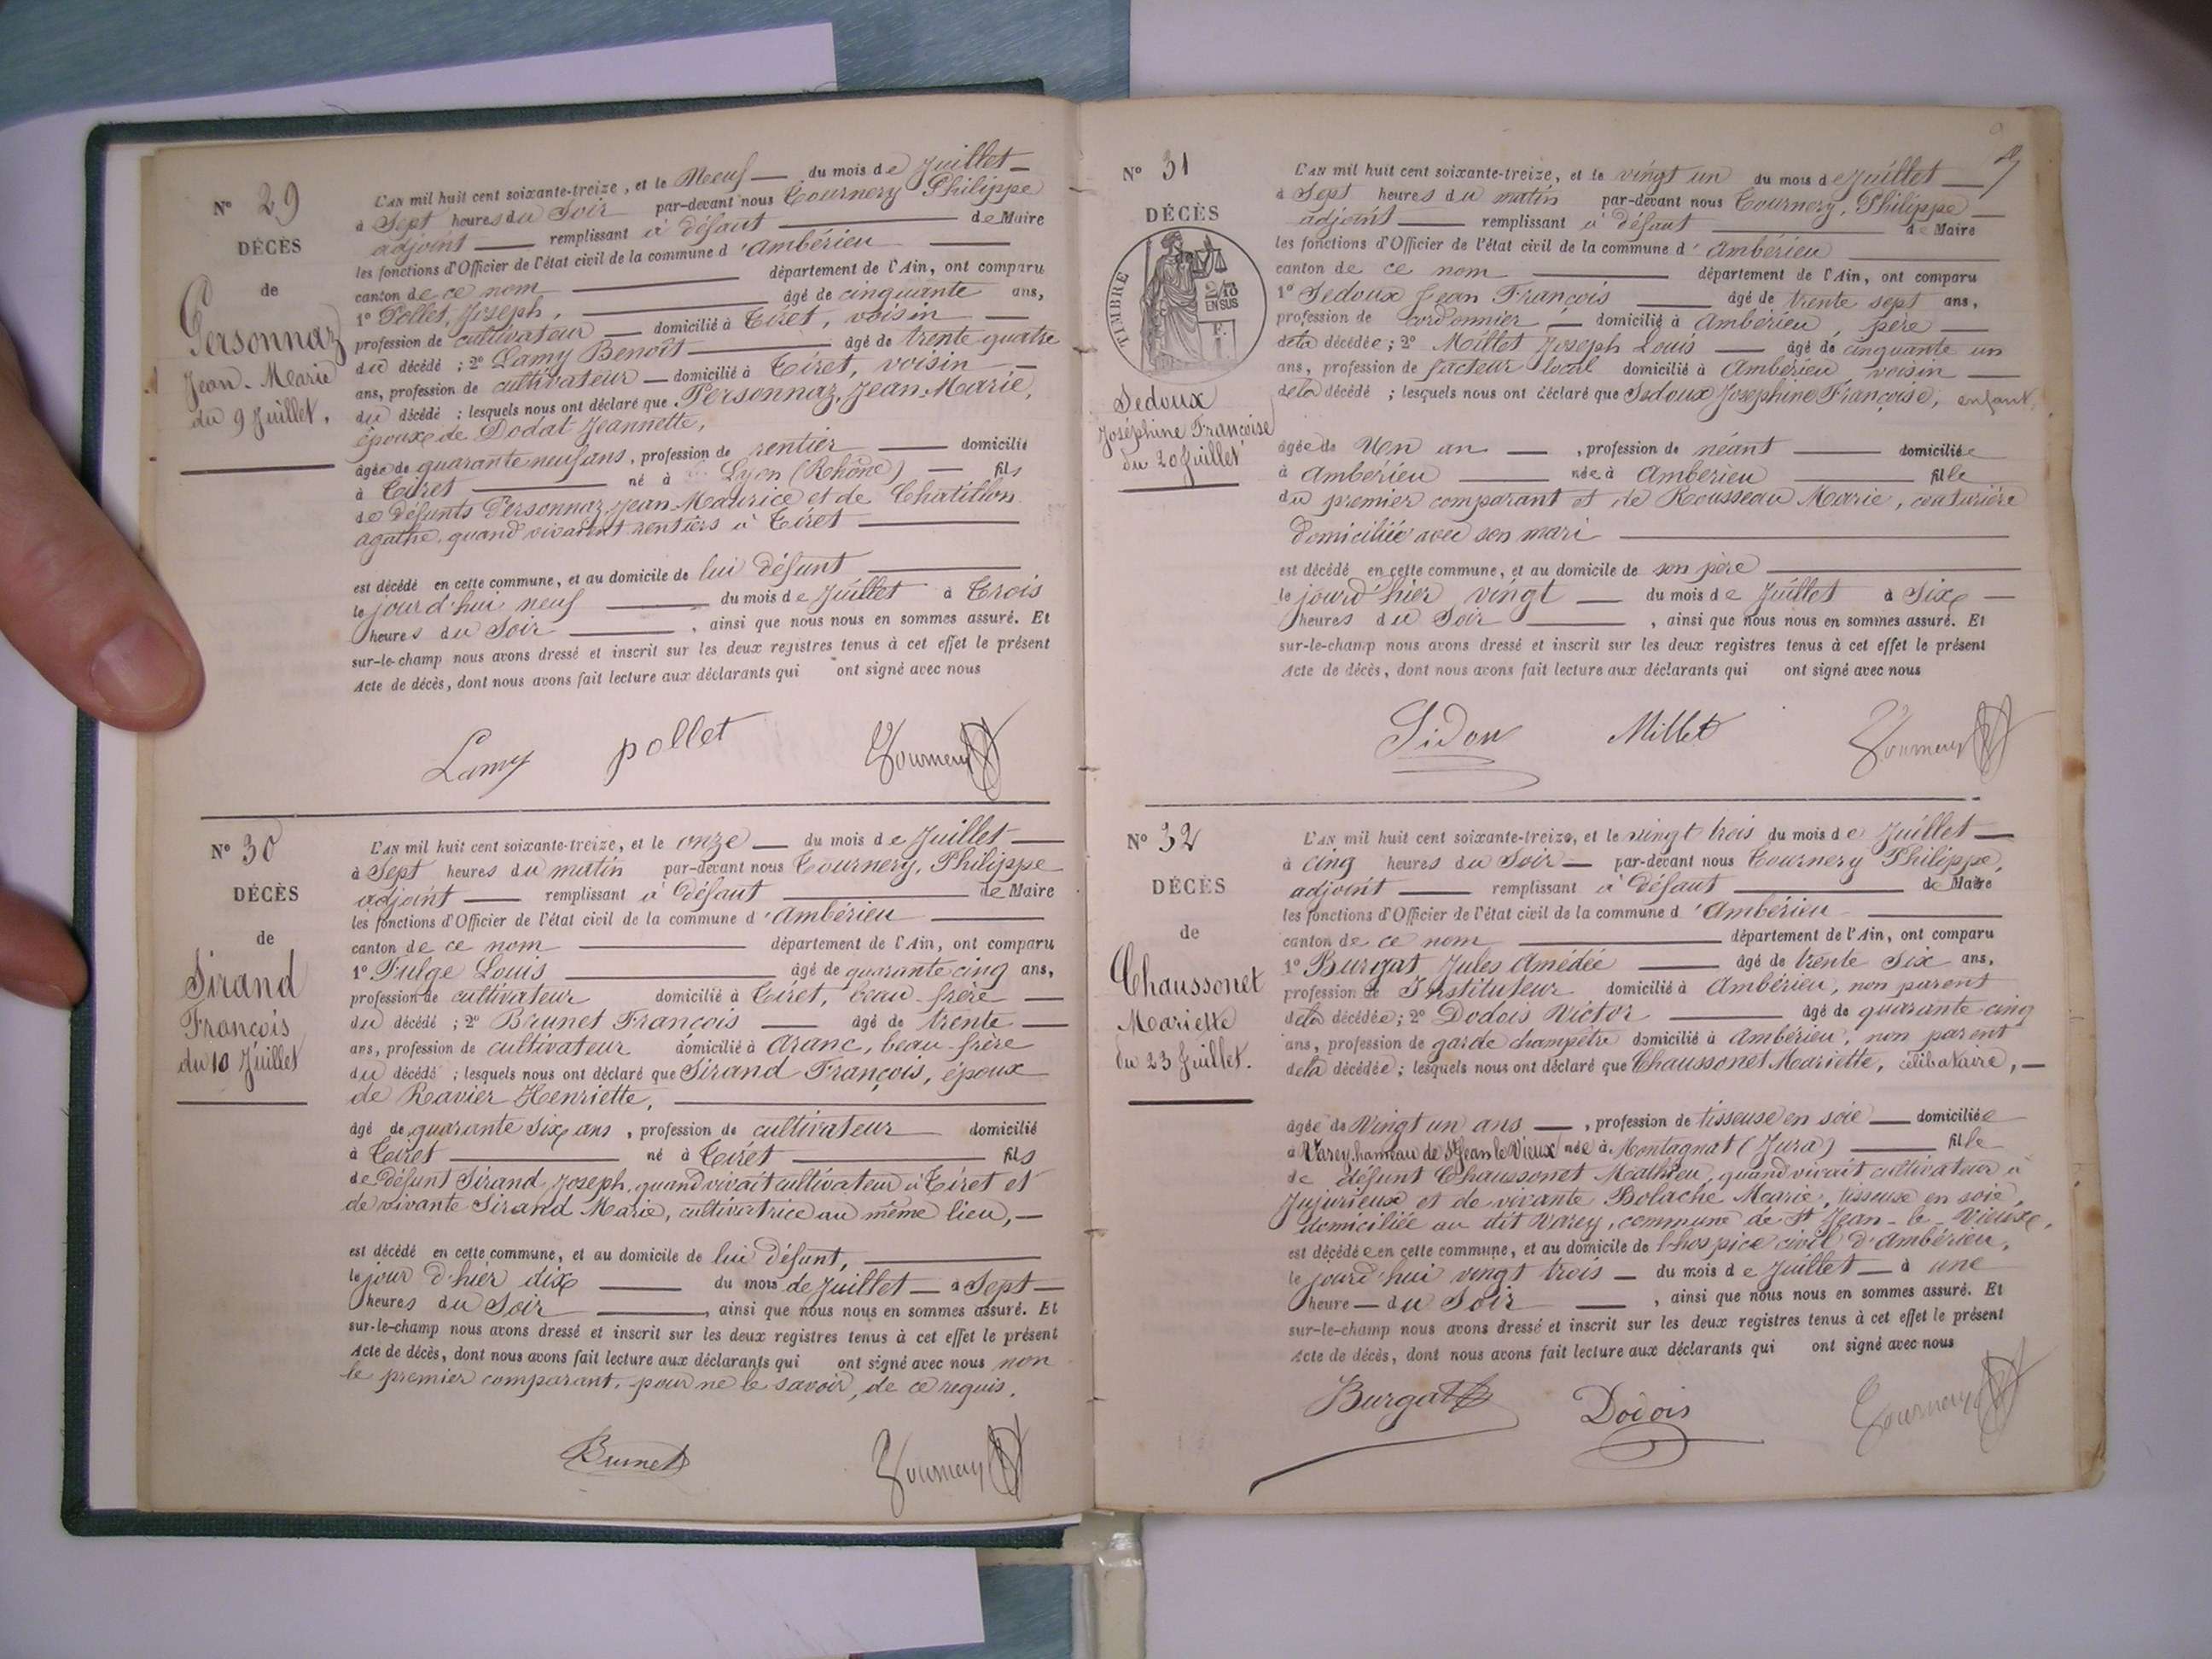 Nº 29
DÉCÈS
de
Personnaz
Jean-Marie
du 9 Juillet.
L'AN mil huit cent soixante-treize, et le Neuf du mois de Juillet
à Sept heures du Soir par-devant nous Tournery Philippe
adjoint remplissant à défaut de Maire
les fonctions d'Officier de l'état civil de la commune d'Ambérieu
canton de ce nom département de l'Ain, ont comparu
1º Pollet, Joseph, âgé de cinquante ans,
profession de cultivateur domicilié à Tiret, voisin
du décédé ; 2º Lamy Benoît âgé de trente quatre
ans, profession de cultivateur domicilié à Tiret, voisin
du décédé ; lesquels nous ont déclaré que Personnaz, Jean-Marie,
époux de Dodat Jeannette,
âgé de quarante neuf ans, profession de rentier domicilié
à Tiret né à Lyon (Rhône) fils
de défunts Personnaz, Jean-Maurice et de Chatillon
agathe, quand vivaient rentiers à Tiret
est décédé en cette commune, et au domicile de lui défunt
le jourd'hui neuf du mois de Juillet à Trois
heures du Soir, ainsi que nous nous en sommes assuré. Et
sur-le-champ nous avons dressé et inscrit sur les deux registres tenus à cet effet le présent
Acte de décès, dont nous avons fait lecture aux déclarants qui ont signé avec nous
Lamy pollet Tournery
Nº 30
DÉCÈS
de
Sirand
François
du 10 Juillet
L'AN mil huit cent soixante-treize, et le onze du mois de Juillet
à Sept heures du matin par-devant nous Tournery, Philippe
adjoint remplissant à défaut de Maire
les fonctions d'Officier de l'état civil de la commune d'Ambérieu
canton de ce nom département de l'Ain, ont comparu
1º Fulge Louis âgé de quarante cinq ans,
profession de cultivateur domicilié à Tiret, beau-frère
du décédé ; 2º Brunet François âgé de trente
ans, profession de cultivateur domicilié à Aranc, beau-frère
du décédé ; lesquels nous ont déclaré que Sirand François, époux
de Ravier Henriette,
âgé de quarante six ans, profession de cultivateur domicilié
à Tiret né à Tiret fils
de défunt Sirand, Joseph, quand vivait cultivateur à Tiret et
de vivante Sirand Marie, cultivatrice au même lieu,
est décédé en cette commune, et au domicile de lui défunt,
le jour d'hier dix du mois de Juillet à Sept
heures du Soir, ainsi que nous nous en sommes assuré. Et
sur-le-champ nous avons dressé et inscrit sur les deux registres tenus à cet effet le présent
Acte de décès, dont nous avons fait lecture aux déclarants qui ont signé avec nous non
le premier comparant, pour ne le savoir, de ce requis.
Brunet Tournery
Nº 31
DÉCÈS
TIMBRE
2/10
EN SUS
Sedoux
Joséphine Françoise
du 20 Juillet
L'AN mil huit cent soixante-treize, et le vingt un du mois de Juillet
à Sept heures du matin par-devant nous Tournery, Philippe
adjoint remplissant à défaut de Maire
les fonctions d'Officier de l'état civil de la commune d'Ambérieu
canton de ce nom département de l'Ain, ont comparu
1º Sedoux Jean François âgé de trente sept ans,
profession de cordonnier domicilié à Ambérieu, père
de la décédée ; 2º Millet Joseph Louis âgé de cinquante un
ans, profession de facteur local domicilié à Ambérieu voisin
de la décédé ; lesquels nous ont déclaré que Sedoux Josephine Françoise, enfant
âgée de Un an, profession de néant domiciliée
à Ambérieu née à Ambérieu fille
du premier comparant et de Rousseau Marie, couturière
domiciliée avec son mari
est décédé en cette commune, et au domicile de son père
le jourd'hier vingt du mois de Juillet à Six
heures du Soir, ainsi que nous nous en sommes assuré. Et
sur-le-champ nous avons dressé et inscrit sur les deux registres tenus à cet effet le présent
Acte de décès, dont nous avons fait lecture aux déclarants qui ont signé avec nous
Sidoux Millet Tournery
Nº 32
DÉCÈS
de
Chaussonet
Mariette
du 23 Juillet.
L'AN mil huit cent soixante-treize, et le vingt trois du mois de Juillet
à cinq heures du Soir par-devant nous Tournery Philippe,
adjoint remplissant à défaut de Maire
les fonctions d'Officier de l'état civil de la commune d'Ambérieu
canton de ce nom département de l'Ain, ont comparu
1º Burgat Jules Amédée âgé de trente Six ans,
profession de Instituteur domicilié à Ambérieu, non parent
de la décédée ; 2º Dodois Victor âgé de quarante cinq
ans, profession de garde champêtre domicilié à Ambérieu, non parent
de la décédée ; lesquels nous ont déclaré que Chaussonet Mariette, célibataire,
âgée de Vingt un ans, profession de tisseuse en soie domiciliée
à Varey, hameau de St Jean le Vieux née à Montagnat (Jura) fille
de défunt Chaussonet Mathieu, quand vivait cultivateur à
Jujurieux et de vivante Bolache Marie, tisseuse en soie,
domiciliée au dit Varey, commune de St Jean-le-Vieux,
est décédée en cette commune, et au domicile de l'hospice civil d'Ambérieu,
le jourd'hui vingt trois du mois de Juillet à une
heure du Soir, ainsi que nous nous en sommes assuré. Et
sur-le-champ nous avons dressé et inscrit sur les deux registres tenus à cet effet le présent
Acte de décès, dont nous avons fait lecture aux déclarants qui ont signé avec nous
Burgat Dodois Tournery